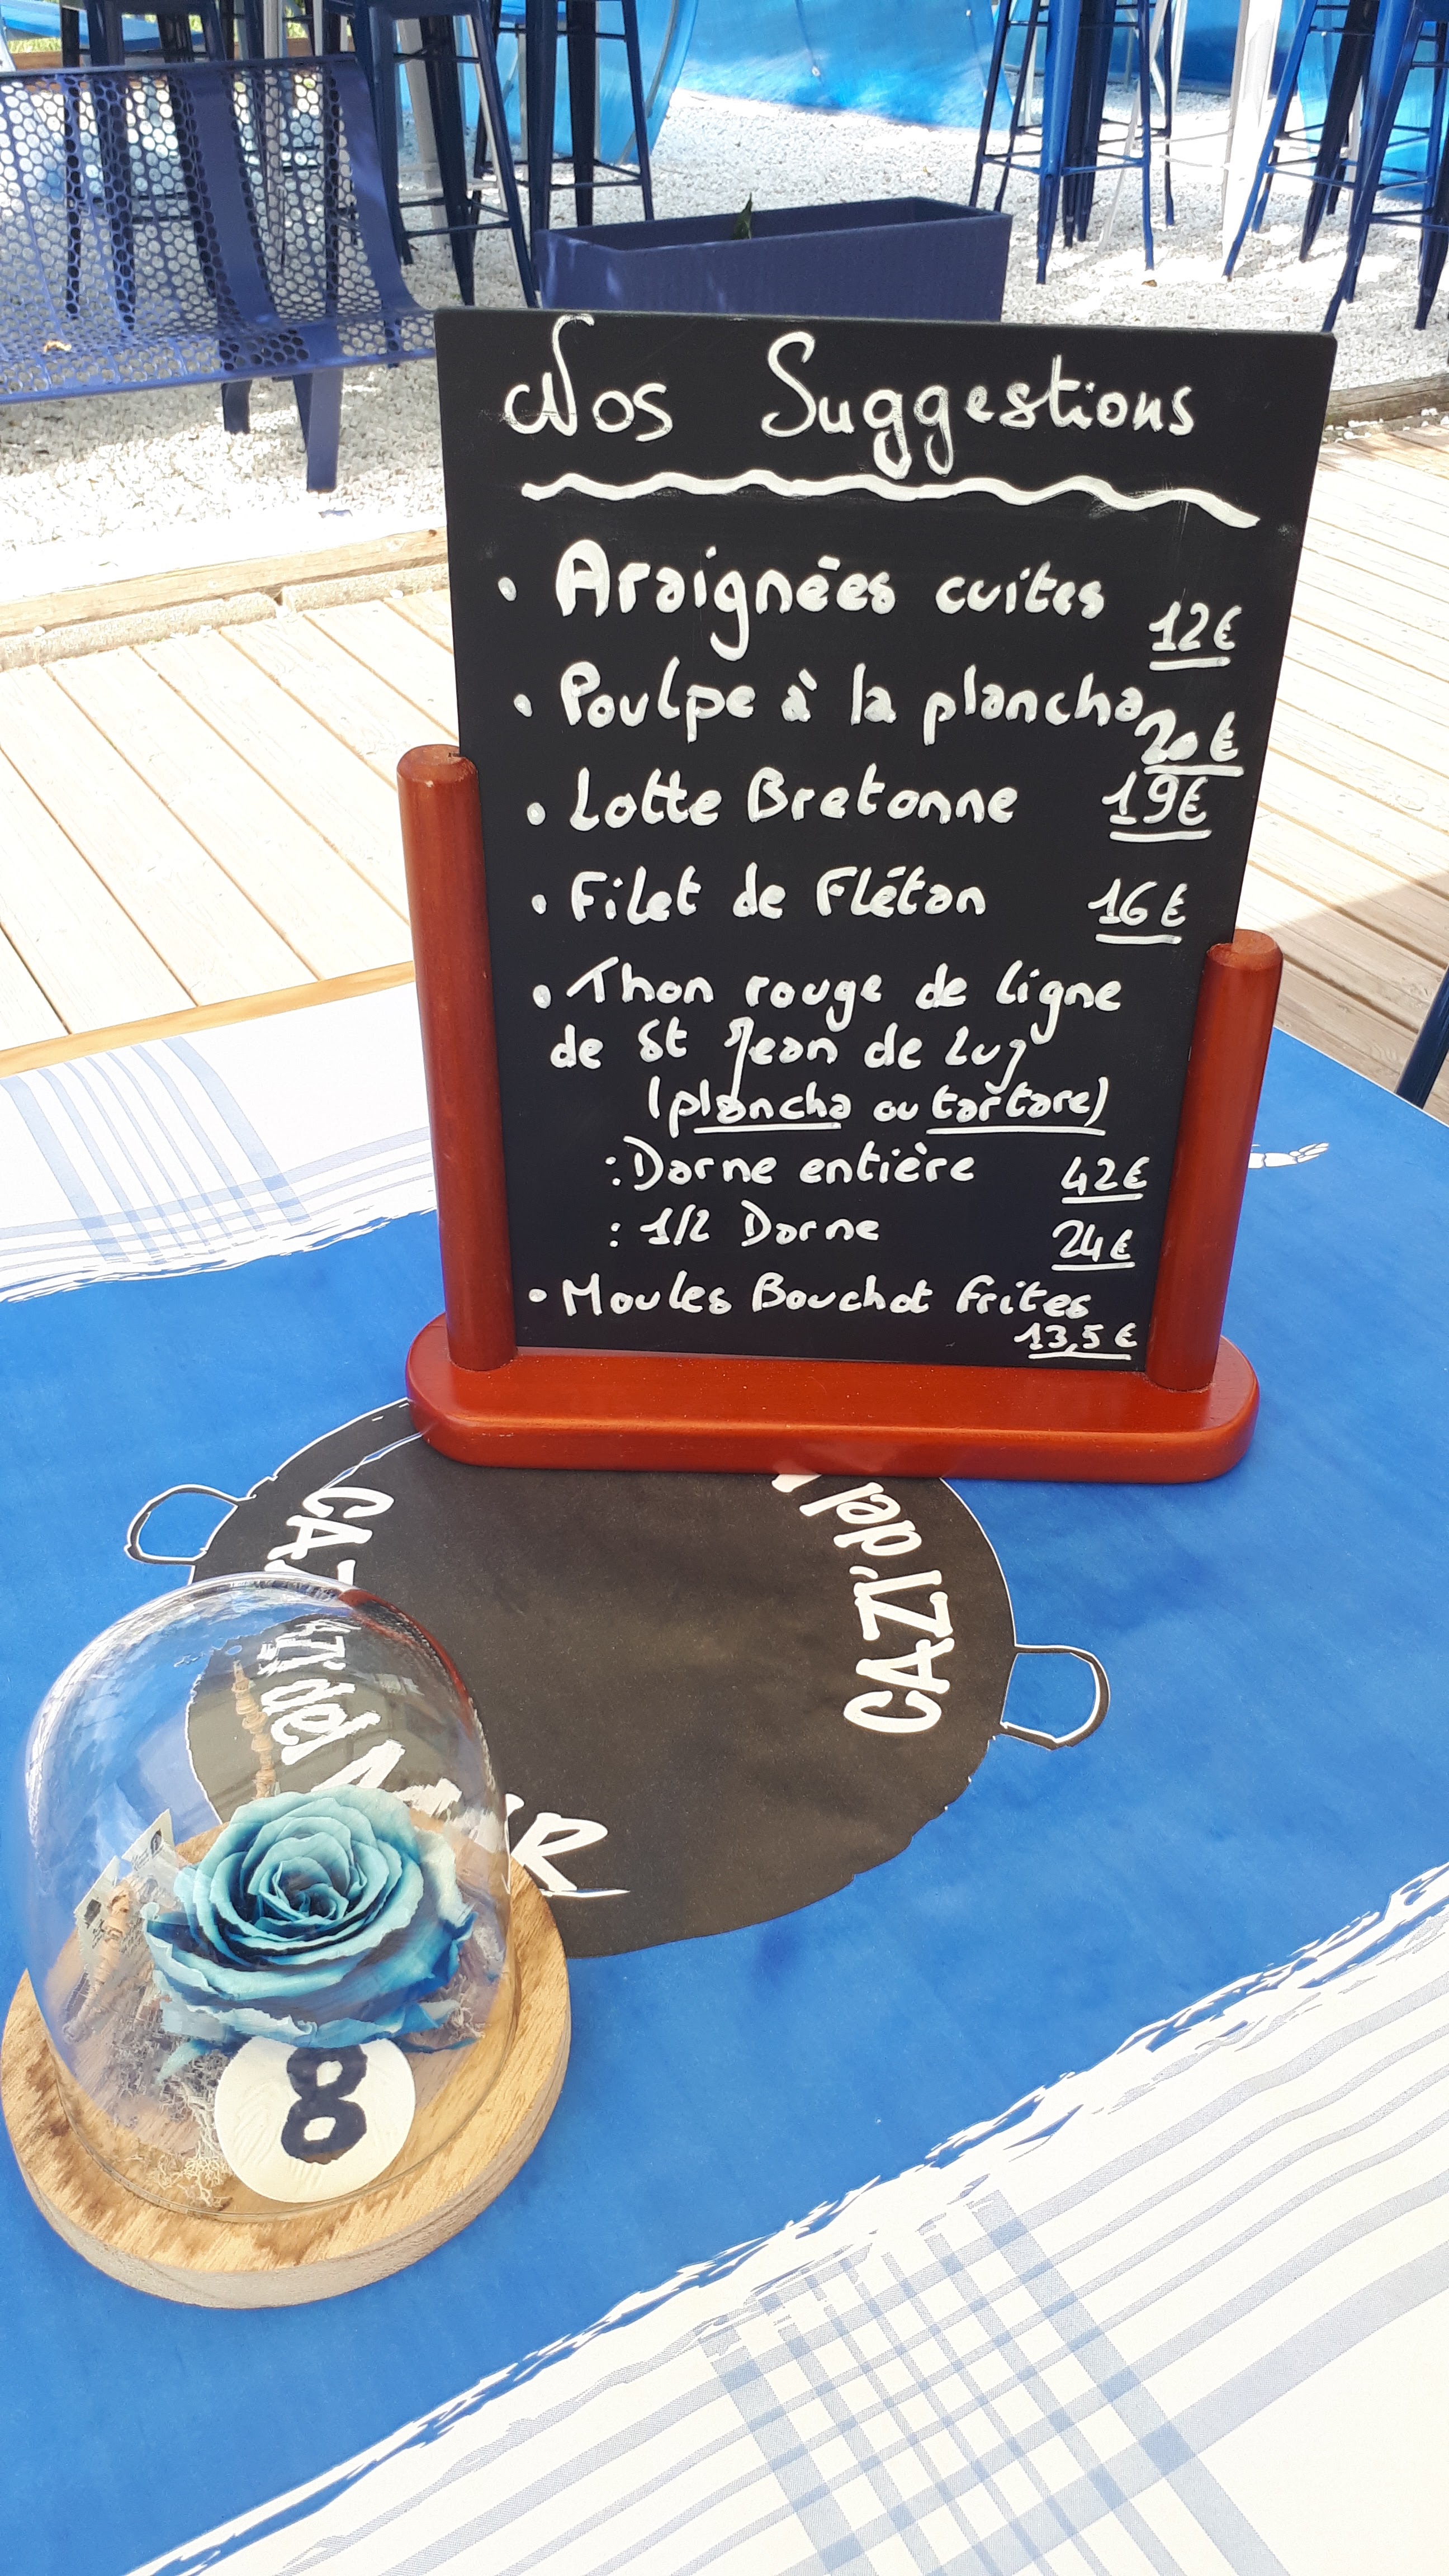 Nos Suggestions
• Araignées cuites 12€
• Poulpe à la plancha 20€
• Lotte Bretonne 19€
• Filet de Flétan 16€
• Thon rouge de ligne
de St Jean de Luz
(plancha ou tartare)
: Darne entière 42€
: 1/2 Darne 24€
• Moules Bouchot frites
13,5€
CAZI'del
CAZI'del
8